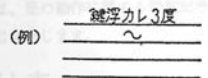 鍵浮カレ3度
(例) 〜